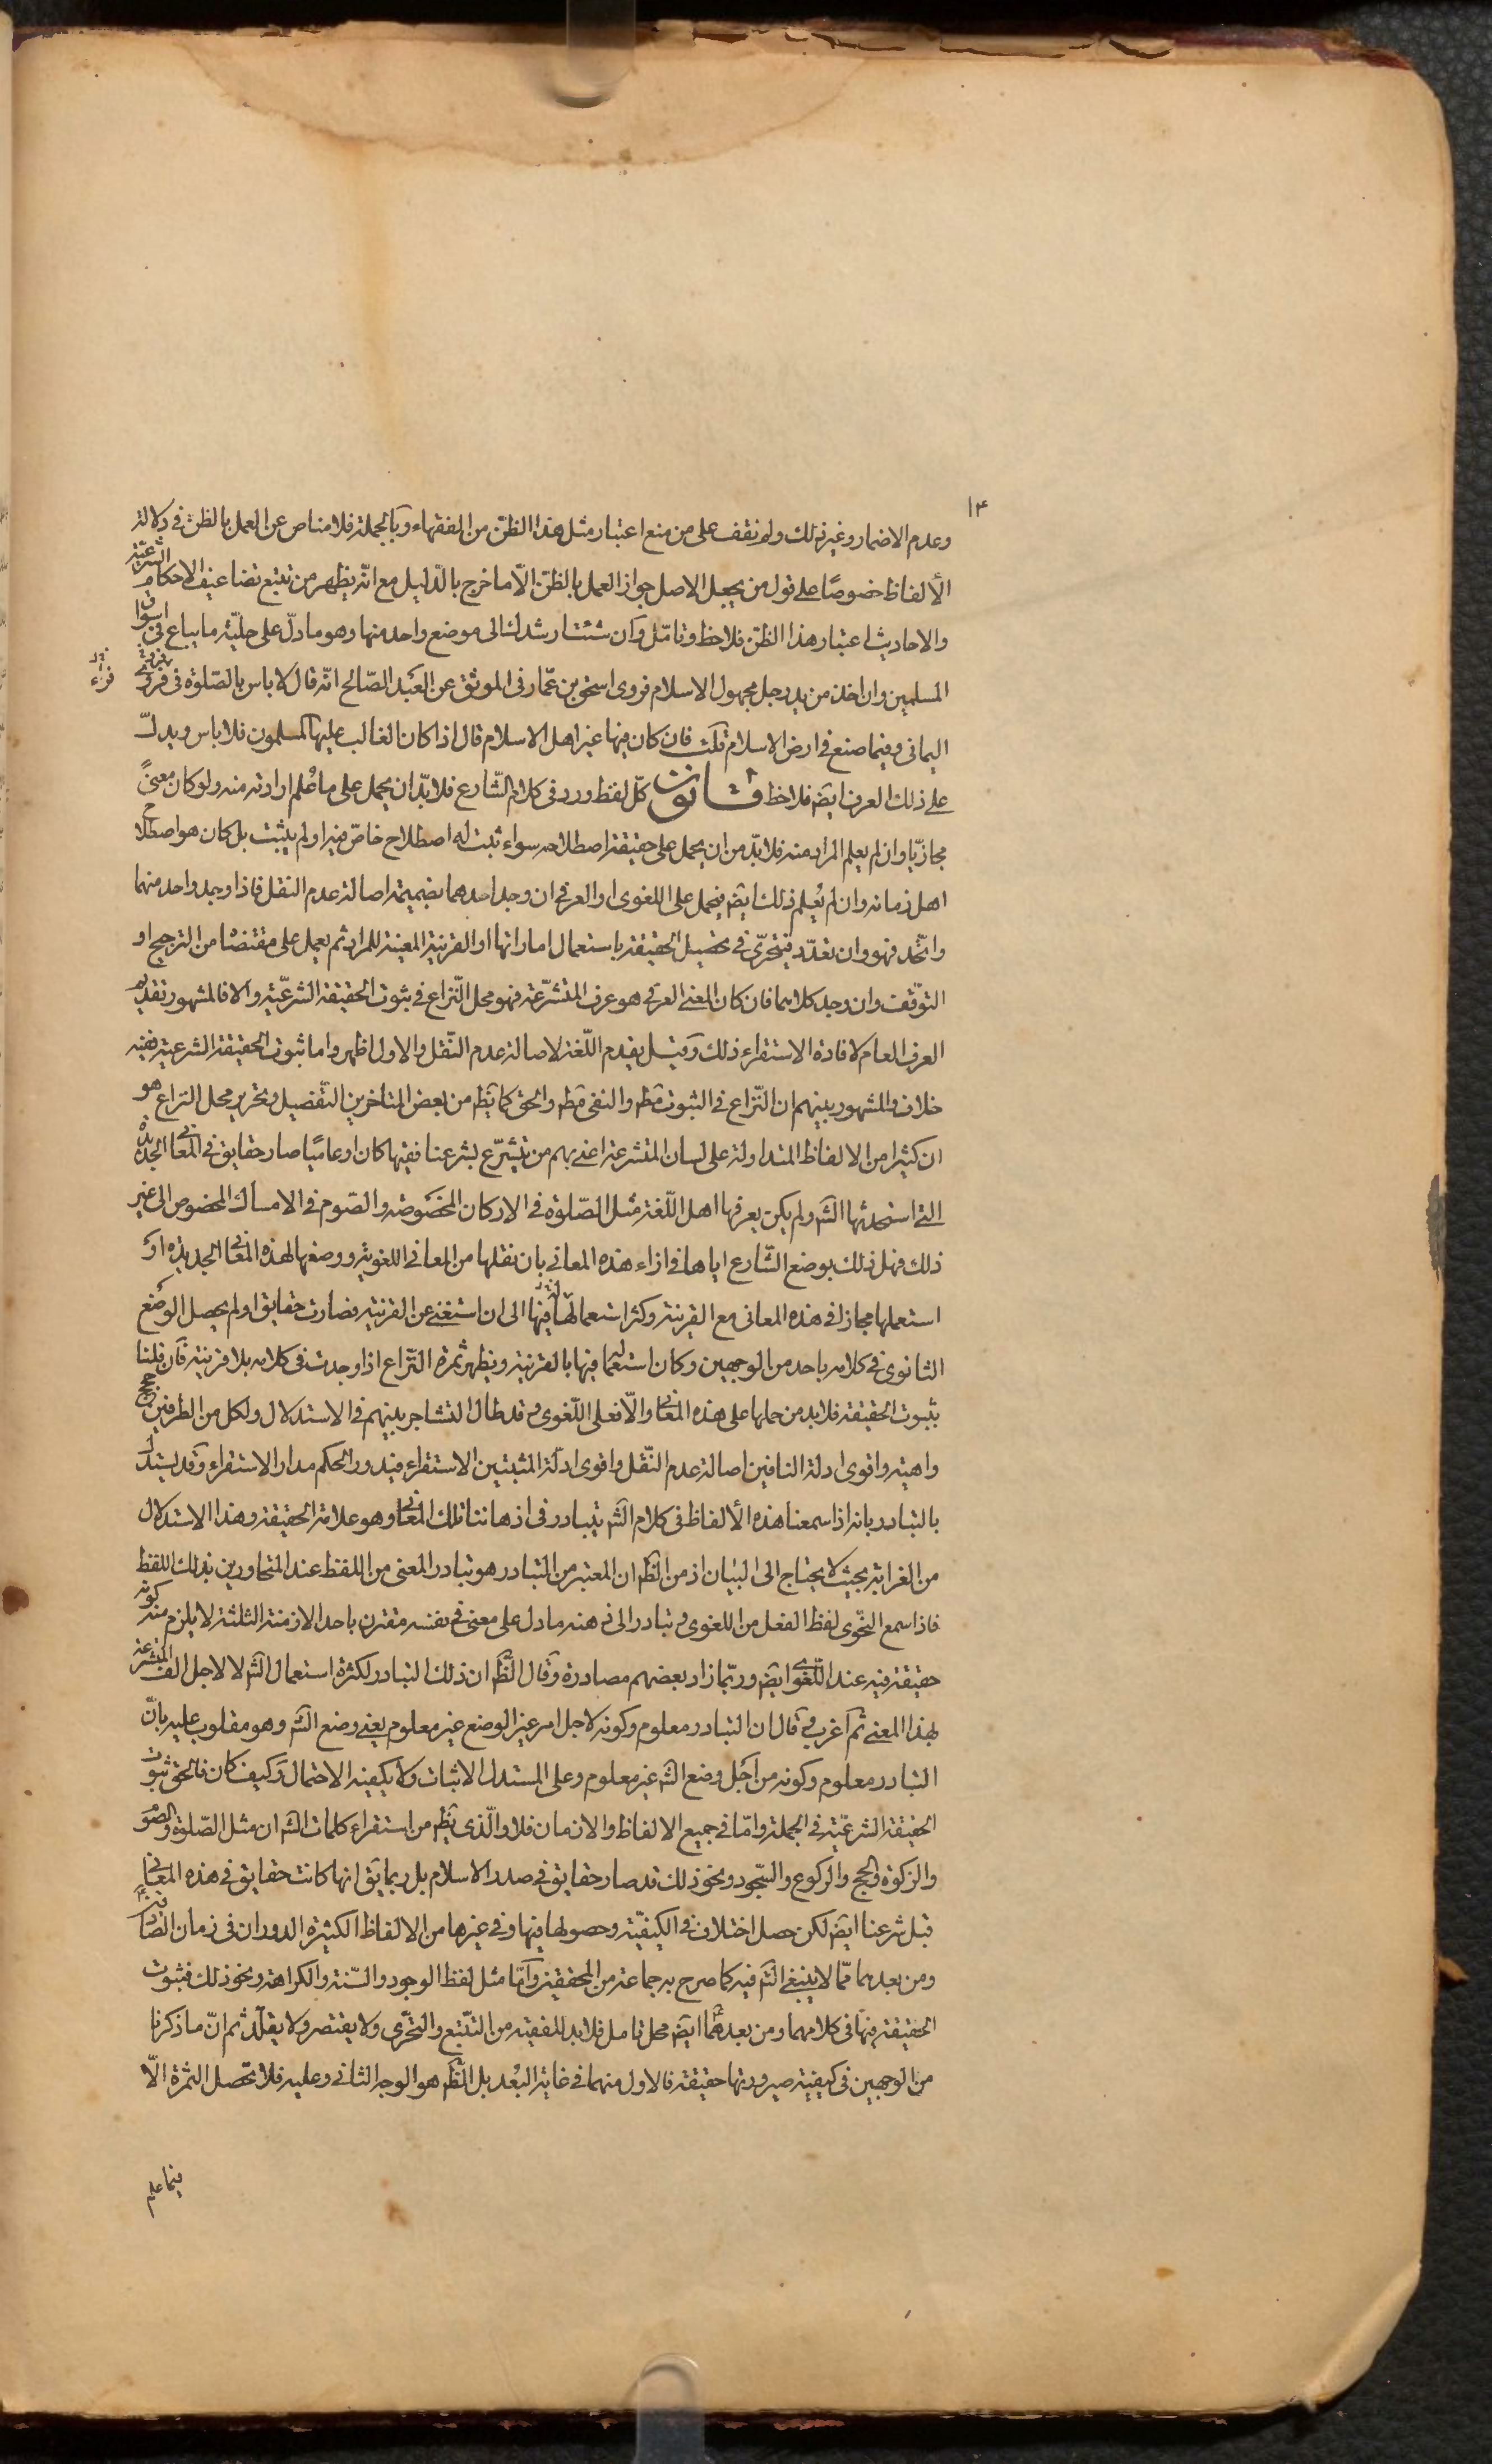 ١٤
وعدم الاضمار وغير ذلك ولم نقف على من منع اعتبار مثل هذا الظن من الفقهاء وبالجملة فلا مناص عن العمل بالظن في دلالة
الألفاظ خصوصًا على قول من يجعل الاصل جواز العمل بالظن الّا ما خرج بالدّليل مع انّه يظهر من تتبع تضاعيف الاحكام الشرعيّة
والاحاديث اعتبار هذا الظن فلاحظ وتامّل وان شئت ارشدك الى موضع واحد منها وهو ما دلّ على حليّة ما يباع في اسواق
المسلمين وان اخذ من يد رجل مجهول الاسلام فروى اسحق بن عمّار في الموثق عن العبد الصّالح انّه قال لا باس بالصّلوة في فرو
فراء
اليماني وفيما صنع في ارض الاسلام قلت فان كان فيها غير اهل الاسلام قال اذا كان الغالب عليها المسلمون فلا باس ويدلّ
على ذلك العرف ايضا فلاحظ قانون كلّ لفظ ورد في كلام الشّارع فلا بدّ ان يحمل على ما عُلم ارادته منه ولو كان معنىً
مجازيّا وان لم يعلم المراد منه فلا بدّ من ان يحمل على حقيقة اصطلاحه سواء ثبت له اصطلاح خاصّ فيه او لم يثبت بل كان هو اصطلاح
اهل زمانه وان لم يُعلم ذلك ايضا فيحمل على اللغوى او العرفي ان وجد احدهما بضميمة اصالة عدم النقل فاذا وجد واحد منهما
واتّحد فهو وان تعدّد فيتحرّى في تحصيل الحقيقة باستعمال اماراتها او القرينة المعينة للمراد ثم يعمل على مقتضاه من الترجيح او
التوقّف وان وجد كلاهما فان كان المعنى العرفي هو عرف المتشرّعة فهو محل النّزاع في ثبوت الحقيقة الشرعيّة والا فالمشهور تقديم
العرف العام لافادة الاستقراء ذلك وقيل يقدم اللّغة لاصالة عدم النّقل والاول اظهر واما ثبوت الحقيقة الشرعية ففيه
خلاف والمشهور بينهم ان النّزاع في الثبوت مط والنفى مط والحق كما يظ من بعض المتاخرين التّفصيل وتحرير محل النزاع هو
ان كثيرا من الالفاظ المتداولة على لسان المتشرعة اعنى بهم من يتشرّع بشرعنا فقيها كان او عاميّا صار حقايق في المعاني الجديدة
التي استحدثها الشّ ولم يكن يعرفها اهل اللّغة مثل الصّلوة في الاركان المخصوصة والصّوم في الامساك المخصوص الى غير
ذلك فهل ذلك بوضع الشّارع اياها في ازاء هذه المعانى بان نقلها من المعانى اللغوية ووضعها لهذه المعانى الجديدة او
استعملها مجازا في هذه المعانى مع القرينة وكثر استعمالها فيها الى ان استغنى عن القرينة فصارت حقايق او لم يحصل الوضع
الثانوى في كلامه باحد من الوجهين وكان استعمالها فيها بالقرينة ويظهر ثمرة النّزاع اذا وجدت في كلامه بلا قرينة فان قلنا
بثبوت الحقيقة فلا بد من حملها على هذه المعاني والّا فعلى اللّغوى وقد طال التشاجر بينهم في الاستدلال ولكل من الطرفين حجج
واهية واقوى ادلة النافين اصالة عدم النّقل واقوى ادلّة المثبتين الاستقراء فيدور الحكم مدار الاستقراء وقد يستدل
بالتبادر بانه اذا سمعنا هذه الألفاظ في كلام الشّ يتبادر في اذهاننا تلك المعاني وهو علامة الحقيقة وهذا الاستدلال
من الغرابة بحيث لا يحتاج الى البيان اذ من الظّ ان المعتبر من التبادر هو تبادر المعنى من اللفظ عند المتحاورين بذلك اللفظ
فاذا سمع النّحوى لفظ الفعل من اللغوى وتبادر الى ذهنه ما دل على معنى في نفسه مقترن باحد الازمنة الثلثة لا يلزم منه كونه
حقيقة فيه عند اللّغوى ايضا وربّما زاد بعضهم مصادرة وقال الظّ ان ذلك التبادر لكثرة استعمال الشّ لا لاجل الف المتشرعة
بهذا المعنى ثم اغرب وقال ان التبادر معلوم وكونه لاجل امر غير الوضع غير معلوم يعنى وضع الشّ وهو مقلوب عليه بانّ
التبادر معلوم وكونه من اجل وضع الشّ غير معلوم وعلى المستدل الاثبات ولا يكفيه الاحتمال وكيف كان فالحق ثبوت
الحقيقة الشرعيّة في الجملة وامّا في جميع الالفاظ والازمان فلا والّذى يظ من استقراء كلمات الشّ ان مثل الصّلوة والصّوم
والزكوة والحج والركوع والسّجود ونحو ذلك قد صار حقايق في صدر الاسلام بل ربما يق انها كانت حقايق في هذه المعاني
قبل شرعنا ايضا لكن حصل اختلاف في الكيفيّة وحصولها فيها وفي غيرها من الالفاظ الكثيرة الدوران في زمان الصّادقين
ومن بعدهما ممّا لا ينبغى الت‍ فيه كما صرح به جماعة من المحققين وامّا مثل لفظ الوجوب والسّنة والكراهة ونحو ذلك فثبوت
الحقيقة فيها في كلامهما ومن بعدهما ايضا محل تامل فلا بد للفقيه من التّتبع والتحرّى ولا يقتصر ولا يقلّد ثم انّ ما ذكرنا
من الوجهين في كيفية صيرورتها حقيقة فالاول منهما في غاية البُعد بل الظّ هو الوجه الثانى وعليه فلا تحصل الثمرة الّا
فيما علم